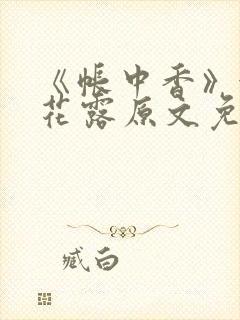 《帐中香》
花露原文免
臧白